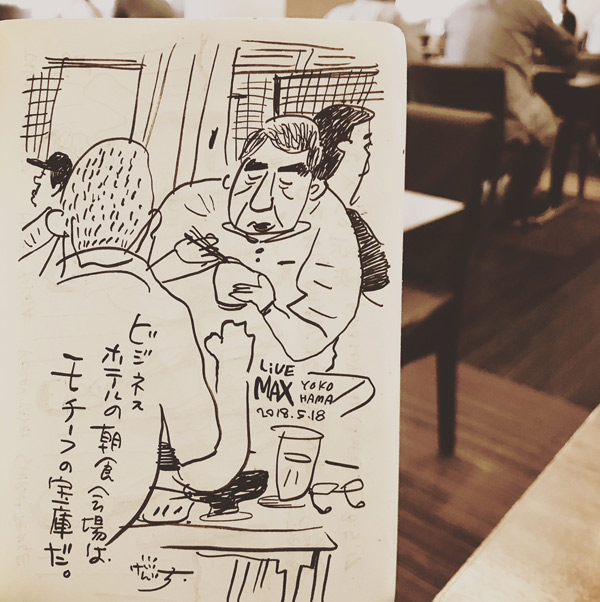 ビジネス
ホテルの朝食会場は
モチーフの宝庫だ。
LiVE
MAX
YOKO
HAMA
2018.5.18